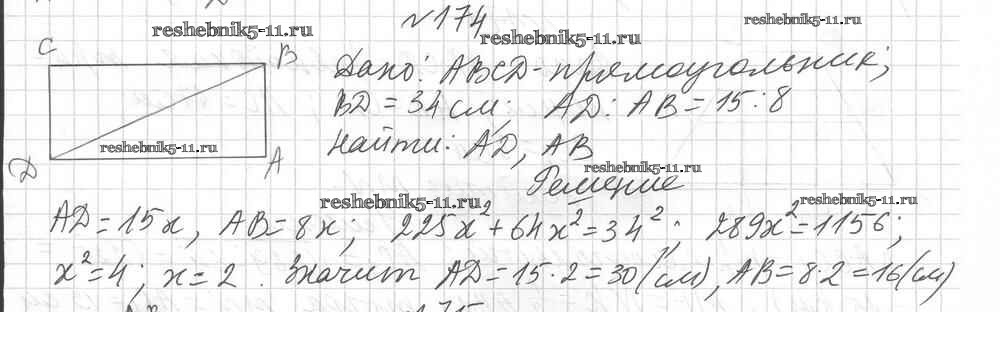 №174
reshebnik5-11.ru
reshebnik5-11.ru
reshebnik5-11.ru
C
B
Дано: ABCD - прямоугольник;
BD = 34 см; AD : AB = 15 : 8
reshebnik5-11.ru
Найти: AD, AB
D
A
reshebnik5-11.ru
Решение
reshebnik5-11.ru
reshebnik5-11.ru
AD = 15x, AB = 8x; 225x² + 64x² = 34²; 289x² = 1156;
x² = 4; x = 2. Значит AD = 15·2 = 30 (см), AB = 8·2 = 16 (см)